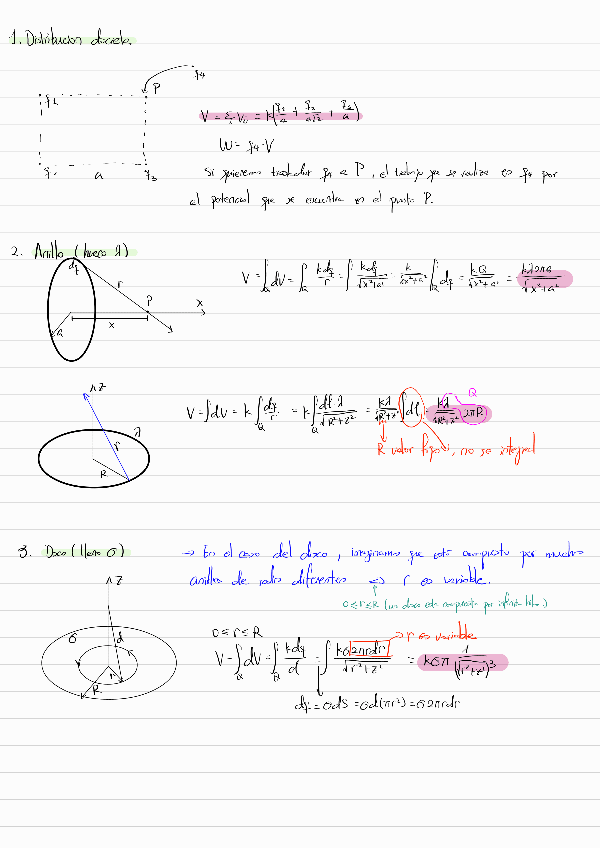 1. Distribución discreta.
q4
P
q2
V = Σ Vi = k(q1/a + q2/a√2 + q3/a)
W = q4·V
q1 a q3
Si queremos trasladar q4 a P, el trabajo que se realiza es q4 por
el potencial que se encuentra en el punto P.
2. Anillo (hueco λ)
dq
r
P
x
a
x
V = ∫Q dV = ∫Q kdq/r = ∫ kdq/√x²+a² = k/√x²+a² ∫Q dq = kQ/√x²+a² = kλ2πa/√x²+a²
z
λ
r
R
Q
V = ∫dV = k ∫Q dq/r = k ∫Q dl λ/√R²+z² = kλ/√R²+z² ∫dl = kλ/√R²+z² (2πR)
R valor fijo, no se integra
3. Disco (lleno σ)
→ En el caso del disco, imaginamos que está compuesto por muchos
anillos de radio diferentes ⇒ r es variable.
0 ≤ r ≤ R (un disco está compuesto por infinitos)
z
σ
d
r
R
0 ≤ r ≤ R
→ r es variable
V = ∫Q dV = ∫Q kdq/d = ∫ kσ2πrdr/√r²+z² = kσπ 1/(√r²+z²)³
dq = σdS = σd(πr²) = σ2πrdr